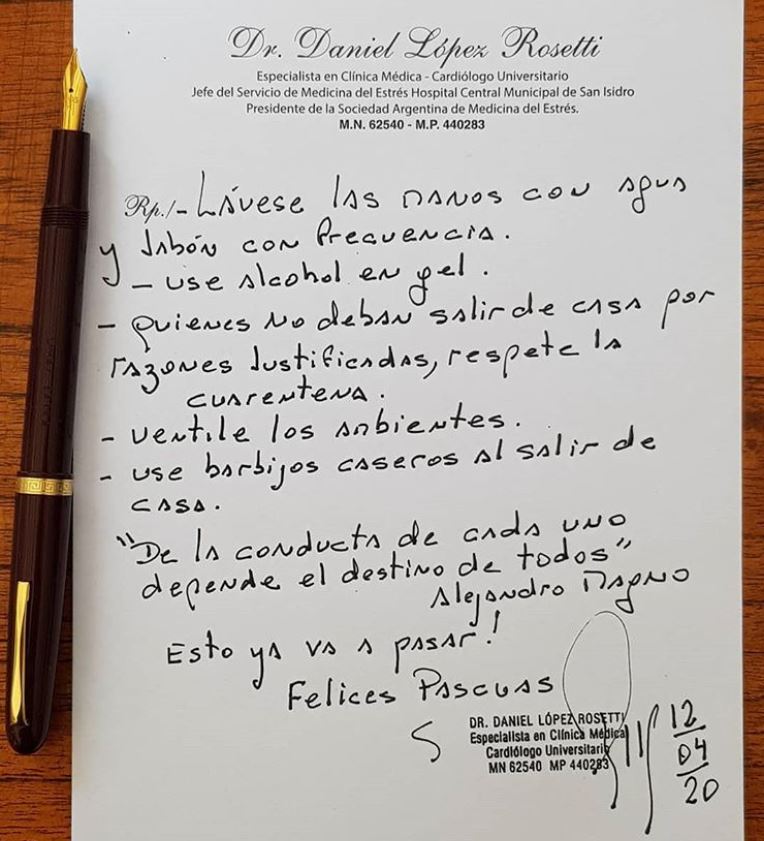 Dr. Daniel López Rosetti
Especialista en Clínica Médica - Cardiólogo Universitario
Jefe del Servicio de Medicina del Estrés Hospital Central Municipal de San Isidro
Presidente de la Sociedad Argentina de Medicina del Estrés.
M.N. 62540 - M.P. 440283
Rp./- Lávese las manos con agua
y Jabón con frecuencia.
- use alcohol en gel.
- quienes no deban salir de casa por
razones Justificadas, respete la
cuarentena.
- ventile los ambientes.
- use barbijos caseros al salir de
casa.
"De la conducta de cada uno
depende el destino de todos"
Alejandro Magno
Esto ya va a pasar!
Felices Pascuas
DR. DANIEL LÓPEZ ROSETTI
Especialista en Clínica Médica
Cardiólogo Universitario
MN 62540 MP 440283
12
04
20